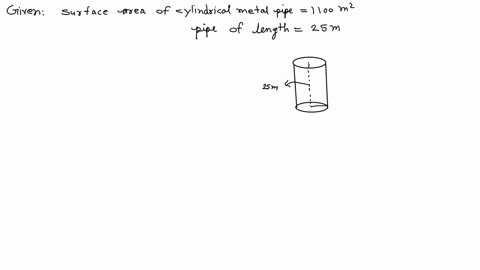 Given: surface area of cylindrical metal pipe = 1100 m²
pipe of length = 25m
25m